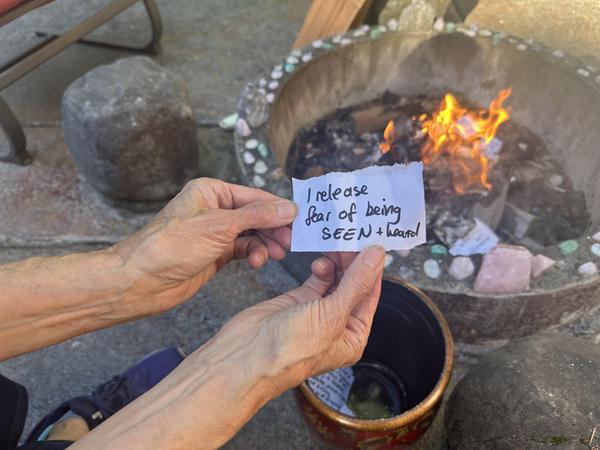 I release
fear of being
SEEN + heard